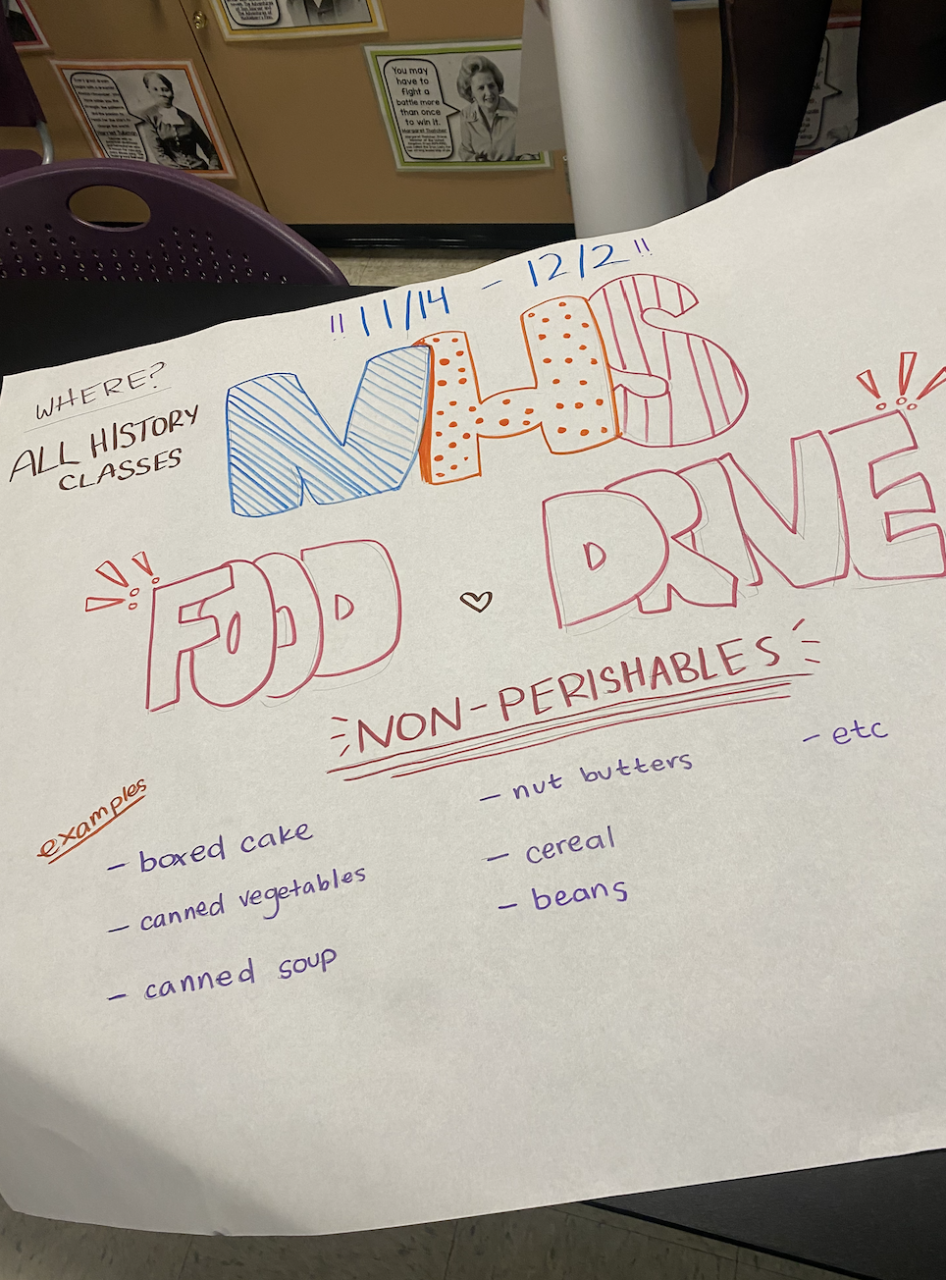 You may
have to
fight a
battle more
than once
to win it.
Margaret Thatcher
Harriet Tubman
"11/14 - 12/2"
WHERE?
ALL HISTORY
CLASSES
NHS
FOOD ♥ DRIVE
NON-PERISHABLES
examples
- boxed cake
- canned vegetables
- canned soup
- nut butters
- cereal
- beans
- etc